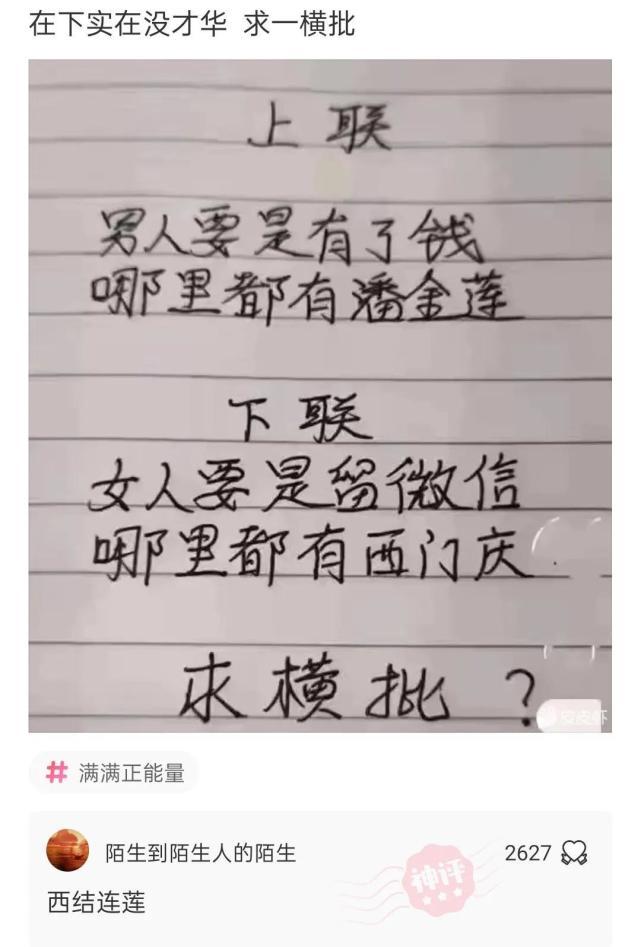 在下实在没才华 求一横批
上联
男人要是有了钱
哪里都有潘金莲
下联
女人要是留微信
哪里都有西门庆
求横批?
皮皮虾
# 满满正能量
陌生到陌生人的陌生
2627
神评
西结连莲